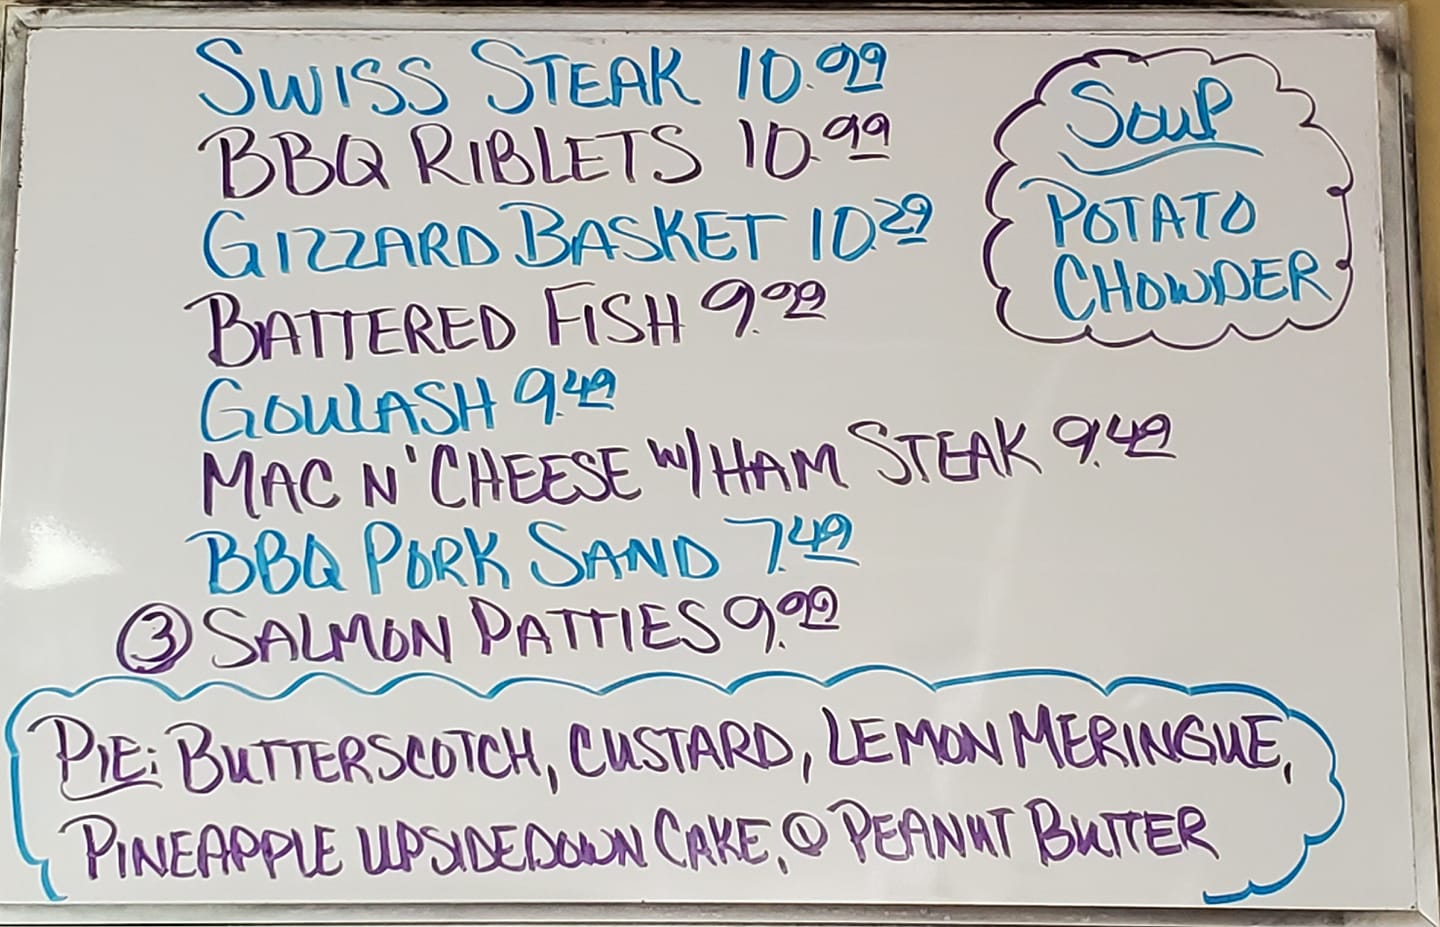 SWISS STEAK 10.99
BBQ RIBLETS 10.99
GIZZARD BASKET 10.29
BATTERED FISH 9.99
GOULASH 9.49
MAC N' CHEESE W/ HAM STEAK 9.49
BBQ PORK SAND 7.49
③ SALMON PATTIES 9.99
SOUP
POTATO
CHOWDER
PIE: BUTTERSCOTCH, CUSTARD, LEMON MERINGUE,
PINEAPPLE UPSIDEDOWN CAKE, ① PEANUT BUTTER